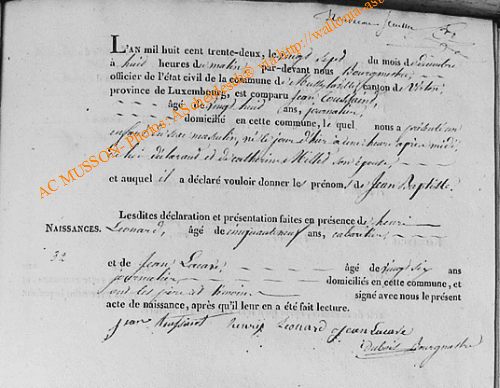 L'AN mil huit cent trente-deux, le vingt sept du mois de décembre
à huit heures du matin par-devant nous Bourgmestre,
officier de l'état civil de la commune de canton de Virton,
province de Luxembourg, est comparu Jean Toussaint,
âgé de vingt huit ans, journalier,
domicilié en cette commune, le quel nous a présenté un
enfant du sexe masculin, né le jour d'hui à une heure après midi,
de lui déclarant et de Catherine Millet son épouse
et auquel il a déclaré vouloir donner les prénoms de Jean Baptiste.
Lesdites déclaration et présentation faites en présence de henri
NAISSANCES. Leonard, âgé de cinquante neuf ans, cabaretier,
32
et de Jean Lacave, âgé de vingt six ans
journalier domiciliés en cette commune, et
ont les père et témoins signé avec nous le présent
acte de naissance, après qu'il leur en a été fait lecture.
Jean Toussaint henry Leonard Jean Lacave
Dubois Bourgmestre
AC MUSSON- Photos AS
via http://wallonia-asb